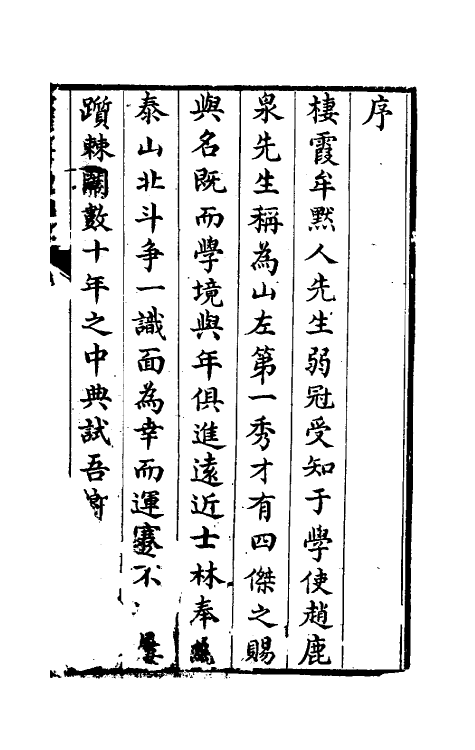 序
棲霞牟默人先生弱冠受知于學使趙鹿
泉先生稱為山左第一秀才有四傑之賜
與名既而學境與年俱進遠近士林奉為
泰山北斗争一識面為幸而運蹇不屢
躓棘闈數十年之中典試吾